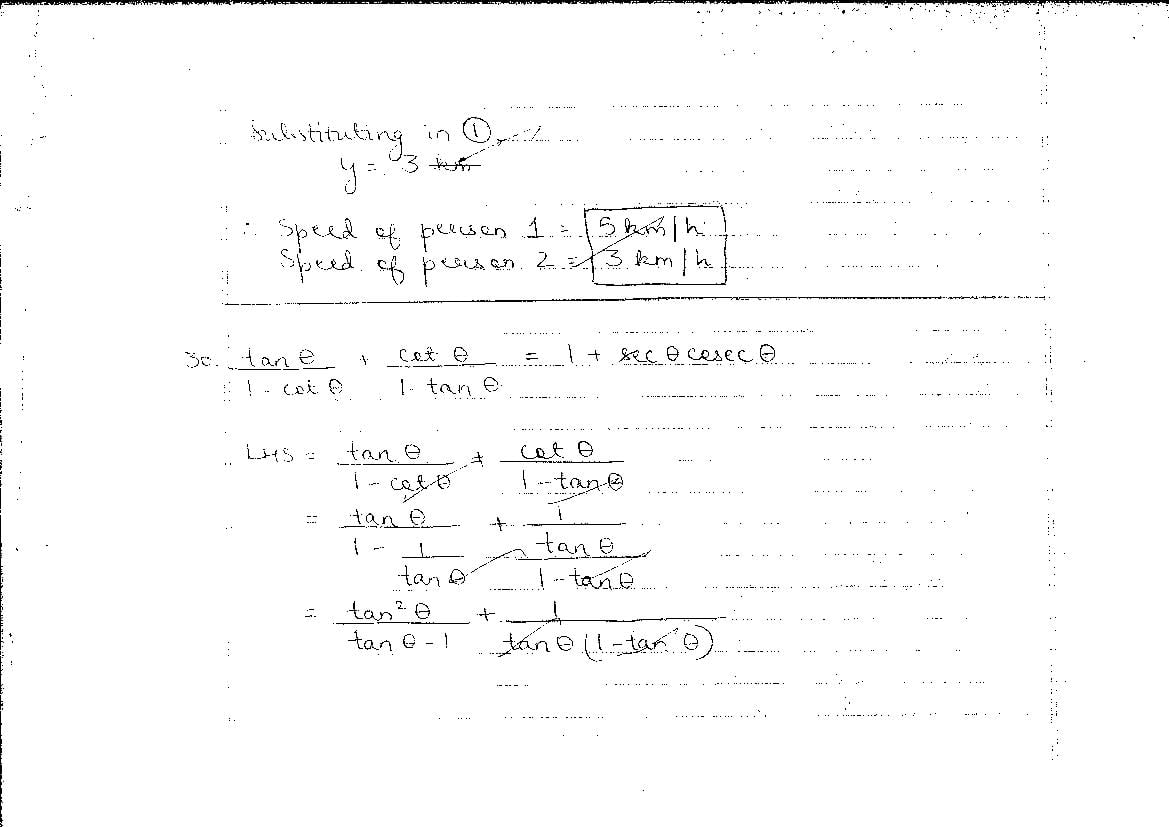 Substituting in ①,
y = 3 km
∴ Speed of person 1 = 5 km/h
Speed of person 2 = 3 km/h
30. tan θ / 1 - cot θ + cot θ / 1 - tan θ = 1 + sec θ cosec θ
LHS = tan θ / 1 - cot θ + cot θ / 1 - tan θ
= tan θ / 1 - 1 / tan θ + 1 / tan θ / 1 - tan θ
= tan² θ / tan θ - 1 + 1 / tan θ (1 - tan θ)